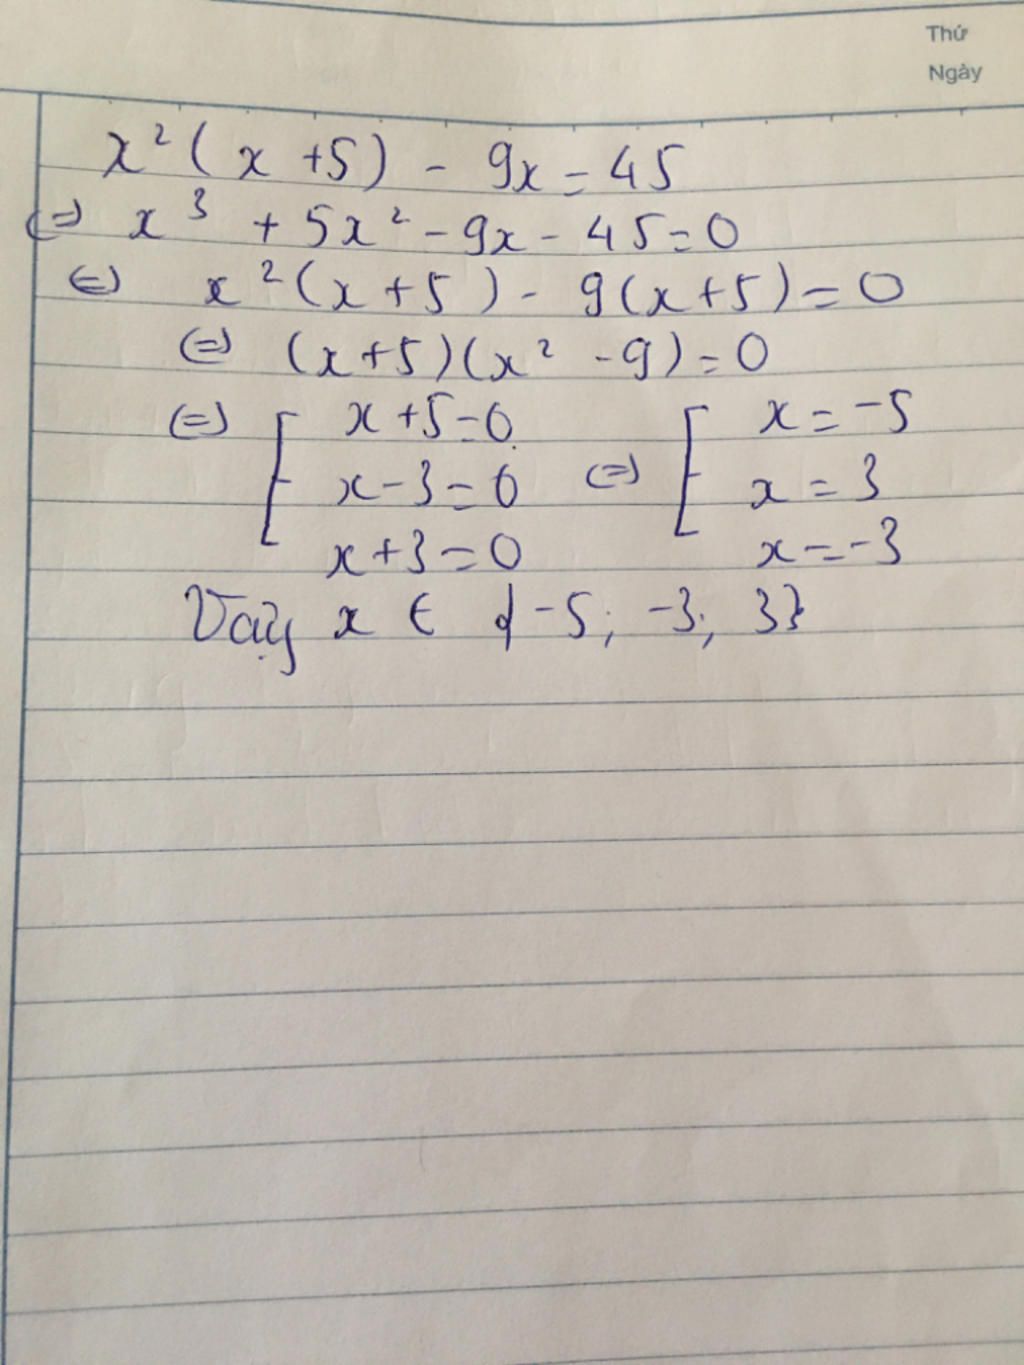 Thứ
Ngày
x²(x+5) - 9x = 45
(=) x³ + 5x² - 9x - 45 = 0
(=) x²(x+5) - 9(x+5) = 0
(=) (x+5)(x² - 9) = 0
(=) [ x+5=0 (=) [ x = -5
x-3=0 x = 3
x+3=0 x = -3
Vậy x ∈ {-5; -3; 3}